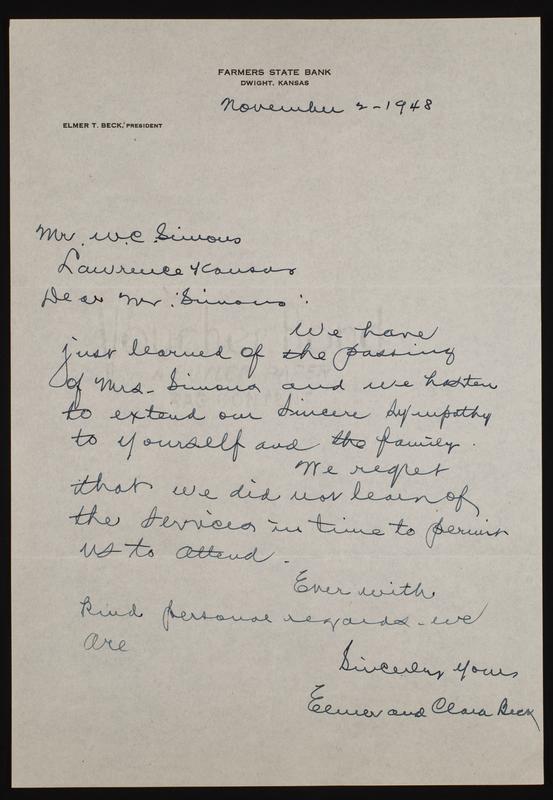 FARMERS STATE BANK
DWIGHT, KANSAS
November 2-1948
ELMER T. BECK, PRESIDENT
Mr. W.C. Simons
Lawrence Kansas
Dear Mr. Simons:
We have
just learned of the passing
of Mrs. Simons and we hasten
to extend our sincere sympathy
to yourself and the family.
We regret
that we did not learn of
the services in time to permit
us to attend.
Ever with
kind personal regards - we
are
Sincerely yours
Elmer and Clara Beck